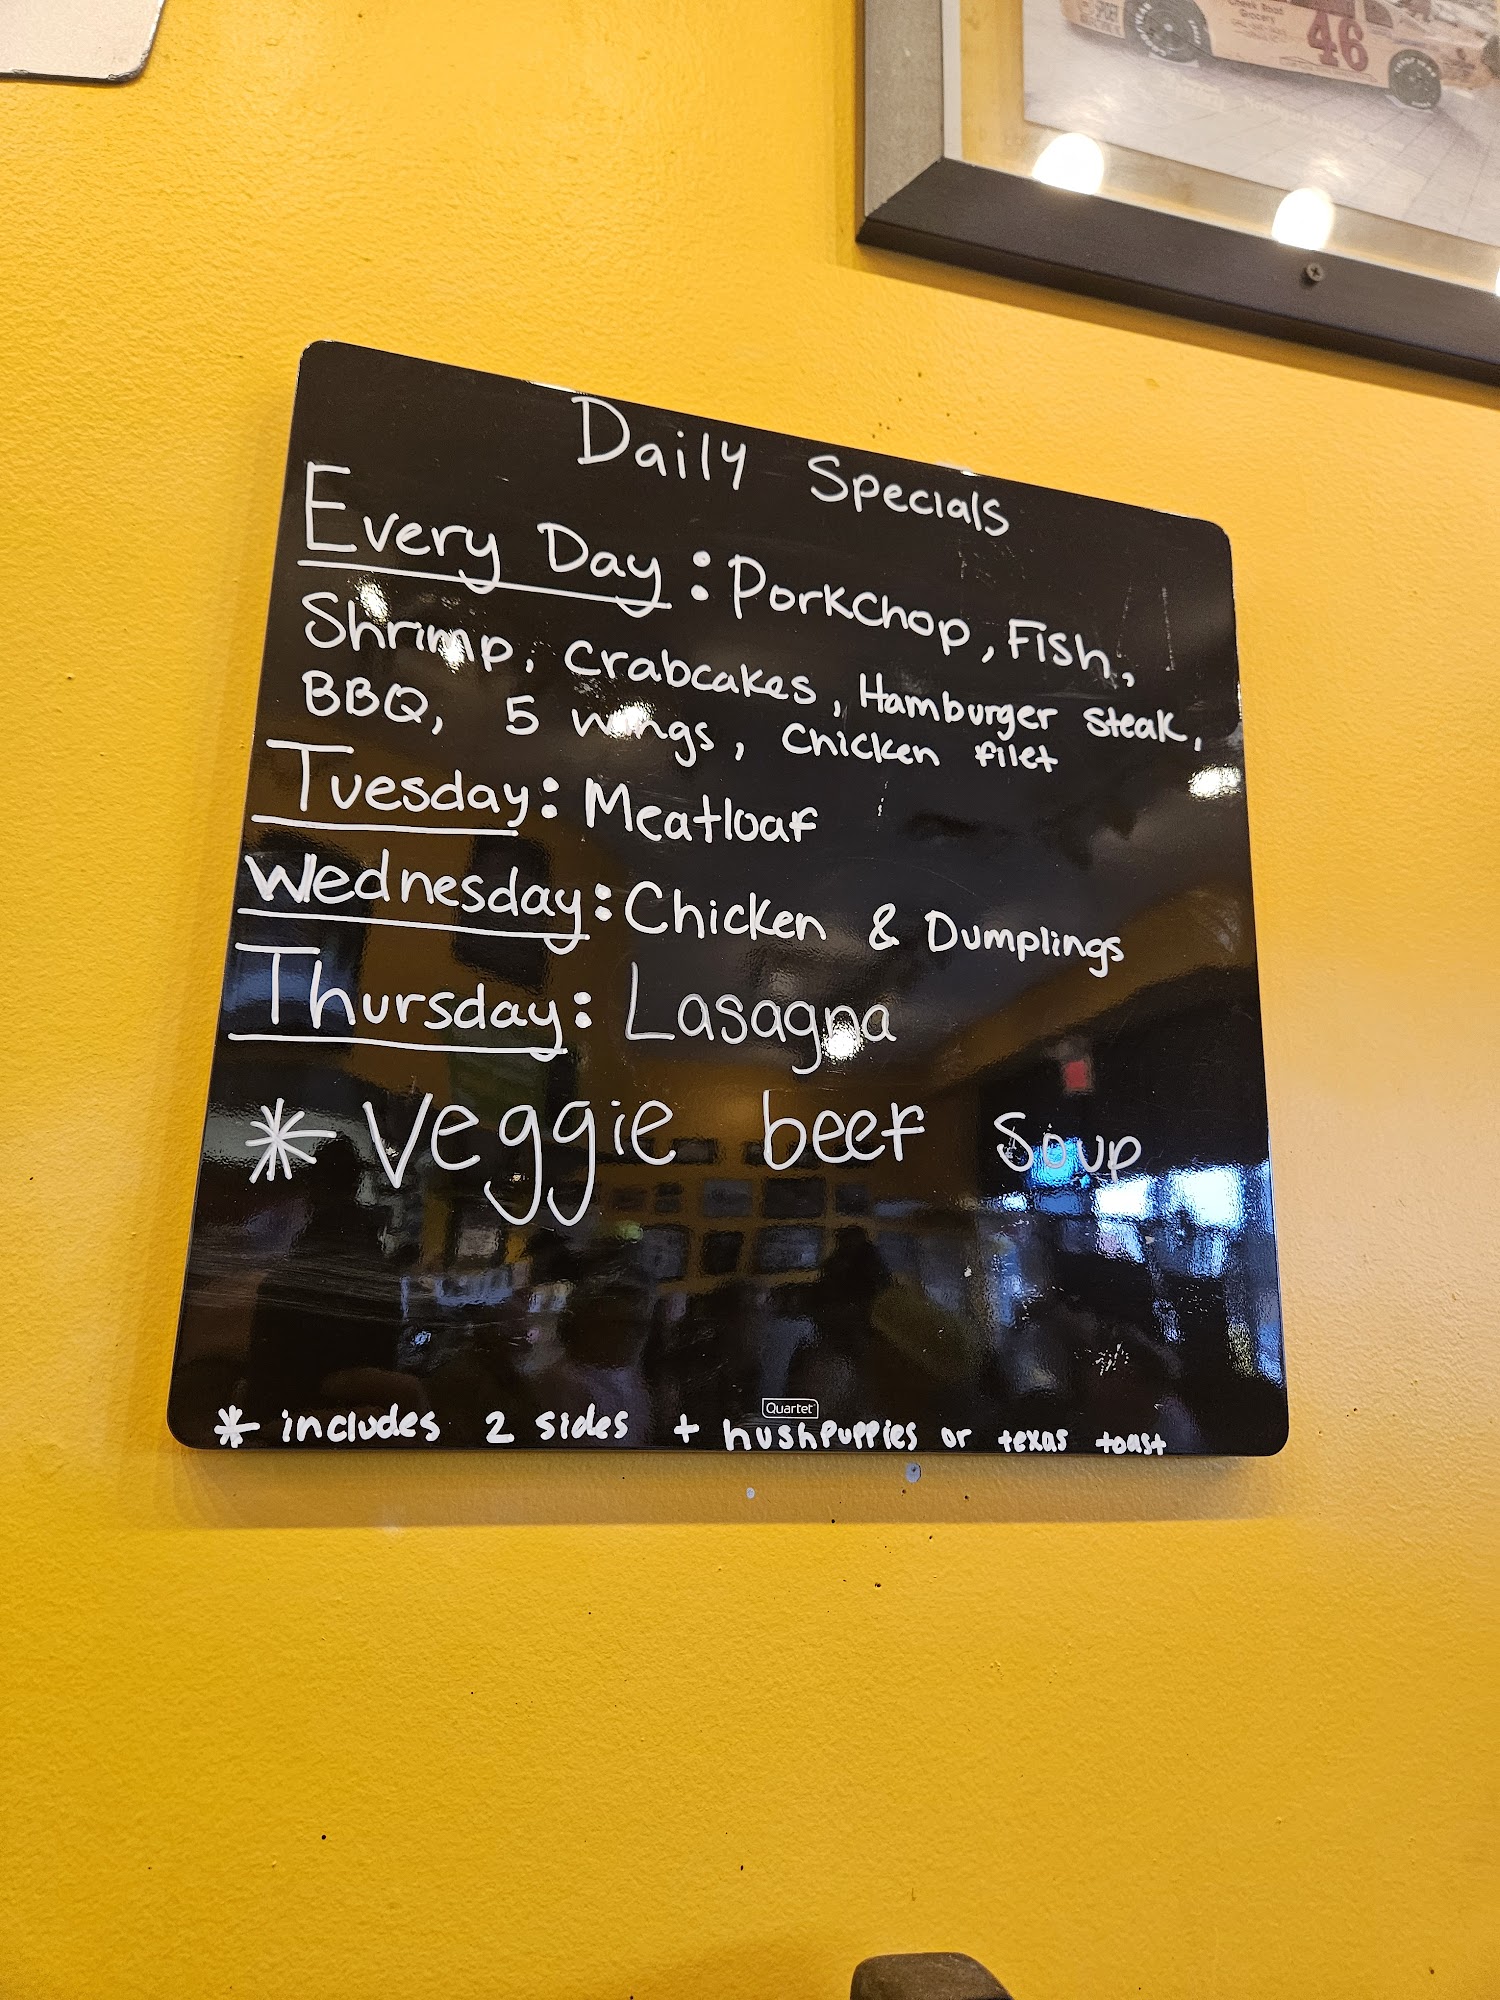 Cheek Road
Grocery
46
Daily Specials
Every Day: Porkchop, Fish,
Shrimp, Crabcakes, Hamburger Steak,
BBQ, 5 wings, Chicken filet
Tuesday: Meatloaf
Wednesday: Chicken & Dumplings
Thursday: Lasagna
* Veggie beef Soup
Quartet
* includes 2 sides + hushpuppies or texas toast